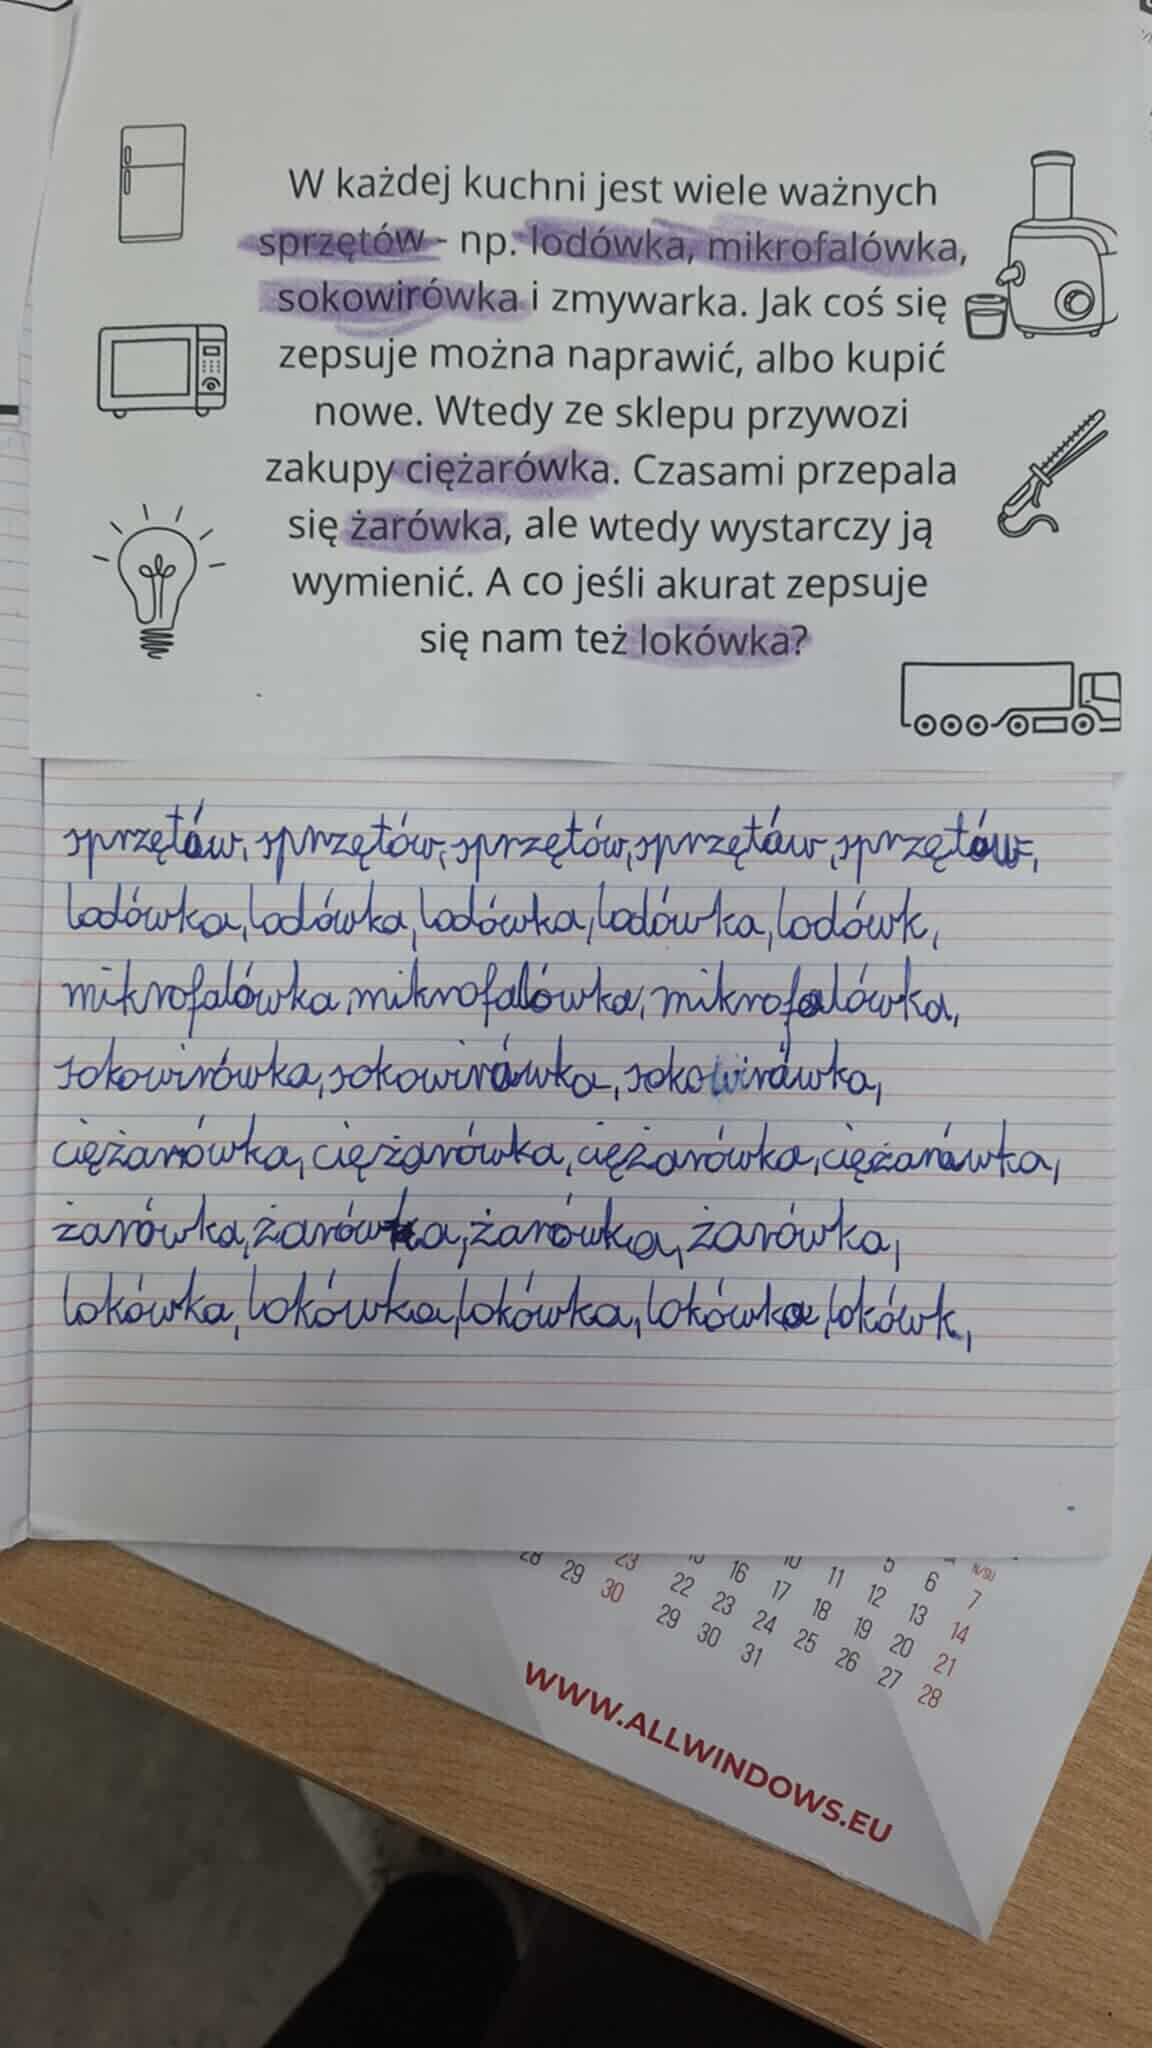 W każdej kuchni jest wiele ważnych
sprzętów - np. lodówka, mikrofalówka,
sokowirówka i zmywarka. Jak coś się
zepsuje można naprawić, albo kupić
nowe. Wtedy ze sklepu przywozi
zakupy ciężarówka. Czasami przepala
się żarówka, ale wtedy wystarczy ją
wymienić. A co jeśli akurat zepsuje
się nam też lokówka?
sprzętów, sprzętów, sprzętów, sprzętów, sprzętów,
lodówka, lodówka, lodówka, lodówka, lodówk,
mikrofalówka, mikrofalówka, mikrofalówka,
sokowirówka, sokowirówka, sokowirówka,
ciężarówka, ciężarówka, ciężarówka, ciężarówka,
żarówka, żarówka, żarówka, żarówka,
lokówka, lokówka, lokówka, lokówka, lokówk,
28 23 10 5 N/SU
29 30 16 10 11 12 6 7
22 17 18 13 14
29 23 24 19 20 21
30 31 25 26 27 28
WWW.ALLWINDOWS.EU